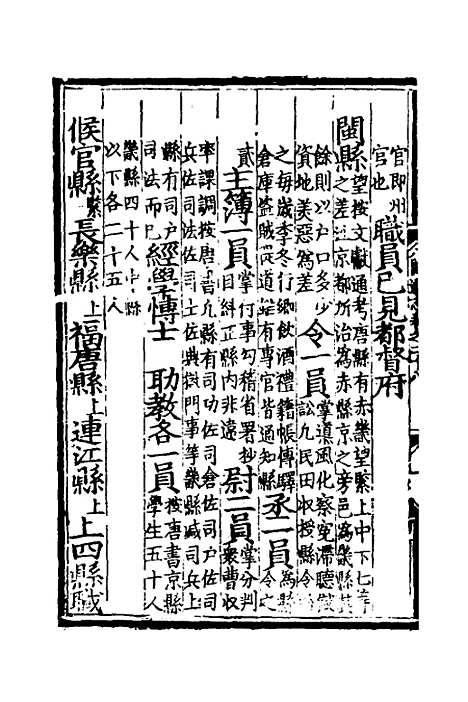 官即州
官也
職員已見都督府
閩縣
望按文獻通考唐縣有赤畿望緊上中下七等
之差京都所治爲赤縣京之旁邑爲畿縣其
餘則以户口多少
資地美惡爲差
令一員
掌導風化察冤滯聽獄
訟凡民田收授縣令
之每歲季冬行鄉飲酒禮籍帳傳驛
倉庫盜賊道雖有專官皆通知縣
丞二員
爲縣
令之
貳
主簿一員
掌付事勾稽省署抄
目糾正縣内非違
尉二員
掌分判
衆曹收
率課調按唐凡縣有司功佐司倉佐司户佐司
兵佐司法佐司士佐典獄門事等畿縣減司兵上
縣有司户
司法而已
經學博士
助教各一員
按唐書京縣
學生五十人
畿縣四十人中縣
以下各二十五人
候官縣
緊
長樂縣
上
福唐縣
上
連江縣
上
上四縣職